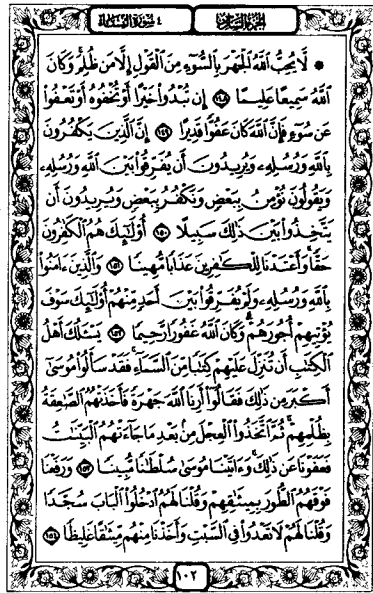 سورة النساء ٤ الجزء السادس
۞ لَّا يُحِبُّ ٱللَّهُ ٱلْجَهْرَ بِٱلسُّوٓءِ مِنَ ٱلْقَوْلِ إِلَّا مَن ظُلِمَ ۚ وَكَانَ
ٱللَّهُ سَمِيعًا عَلِيمًا ١٤٨ إِن تُبْدُوا۟ خَيْرًا أَوْ تُخْفُوهُ أَوْ تَعْفُوا۟
عَن سُوٓءٍ فَإِنَّ ٱللَّهَ كَانَ عَفُوًّا قَدِيرًا ١٤٩ إِنَّ ٱلَّذِينَ يَكْفُرُونَ
بِٱللَّهِ وَرُسُلِهِۦ وَيُرِيدُونَ أَن يُفَرِّقُوا۟ بَيْنَ ٱللَّهِ وَرُسُلِهِۦ
وَيَقُولُونَ نُؤْمِنُ بِبَعْضٍ وَنَكْفُرُ بِبَعْضٍ وَيُرِيدُونَ أَن
يَتَّخِذُوا۟ بَيْنَ ذَٰلِكَ سَبِيلًا ١٥٠ أُو۟لَٰٓئِكَ هُمُ ٱلْكَٰفِرُونَ
حَقًّا ۚ وَأَعْتَدْنَا لِلْكَٰفِرِينَ عَذَابًا مُّهِينًا ١٥١ وَٱلَّذِينَ ءَامَنُوا۟
بِٱللَّهِ وَرُسُلِهِۦ وَلَمْ يُفَرِّقُوا۟ بَيْنَ أَحَدٍ مِّنْهُمْ أُو۟لَٰٓئِكَ سَوْفَ
يُؤْتِيهِمْ أُجُورَهُمْ ۗ وَكَانَ ٱللَّهُ غَفُورًا رَّحِيمًا ١٥٢ يَسْـَٔلُكَ أَهْلُ
ٱلْكِتَٰبِ أَن تُنَزِّلَ عَلَيْهِمْ كِتَٰبًا مِّنَ ٱلسَّمَآءِ ۚ فَقَدْ سَأَلُوا۟ مُوسَىٰٓ
أَكْبَرَ مِن ذَٰلِكَ فَقَالُوٓا۟ أَرِنَا ٱللَّهَ جَهْرَةً فَأَخَذَتْهُمُ ٱلصَّٰعِقَةُ
بِظُلْمِهِمْ ۚ ثُمَّ ٱتَّخَذُوا۟ ٱلْعِجْلَ مِنۢ بَعْدِ مَا جَآءَتْهُمُ ٱلْبَيِّنَٰتُ
فَعَفَوْنَا عَن ذَٰلِكَ ۚ وَءَاتَيْنَا مُوسَىٰ سُلْطَٰنًا مُّبِينًا ١٥٣ وَرَفَعْنَا
فَوْقَهُمُ ٱلطُّورَ بِمِيثَٰقِهِمْ وَقُلْنَا لَهُمُ ٱدْخُلُوا۟ ٱلْبَابَ سُجَّدًا
وَقُلْنَا لَهُمْ لَا تَعْدُوا۟ فِى ٱلسَّبْتِ وَأَخَذْنَا مِنْهُم مِّيثَٰقًا غَلِيظًا ١٥٤
١٠٢